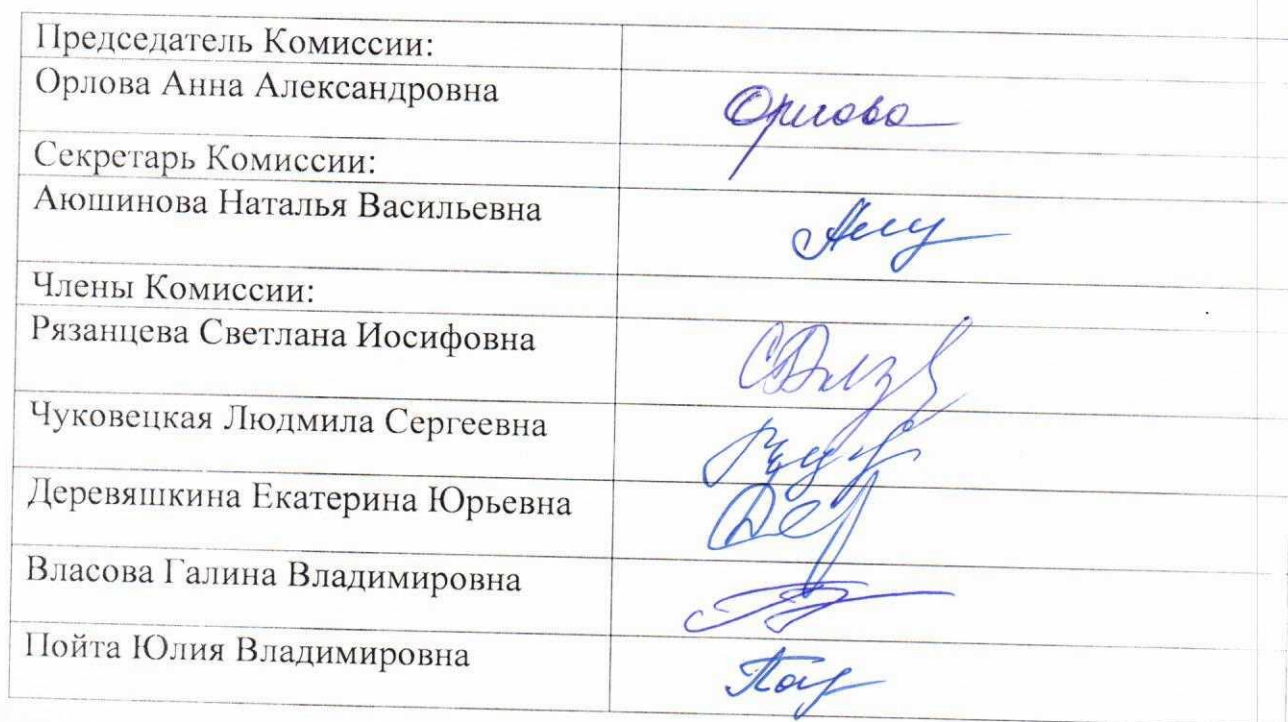 Председатель Комиссии:
Орлова Анна Александровна
Орлова
Секретарь Комиссии:
Аюшинова Наталья Васильевна
Члены Комиссии:
Рязанцева Светлана Иосифовна
Чуковецкая Людмила Сергеевна
Деревяшкина Екатерина Юрьевна
Власова Галина Владимировна
Пойта Юлия Владимировна